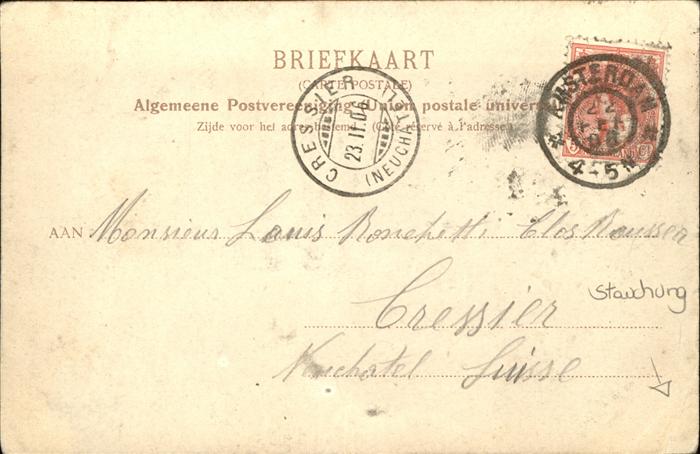 BRIEFKAART
(CARTE POSTALE)
Algemeene Postvereeniging Union postale universelle
Zijde voor het adres bestemd. (Côté réservé à l'adresse.)
CRESSIER (NEUCHATEL)
23.II.06
AMSTERDAM
4-5 N
AAN Monsieur Louis Ronchetti Clos Rousseau
Stauchung
Cressier
Neuchatel Suisse